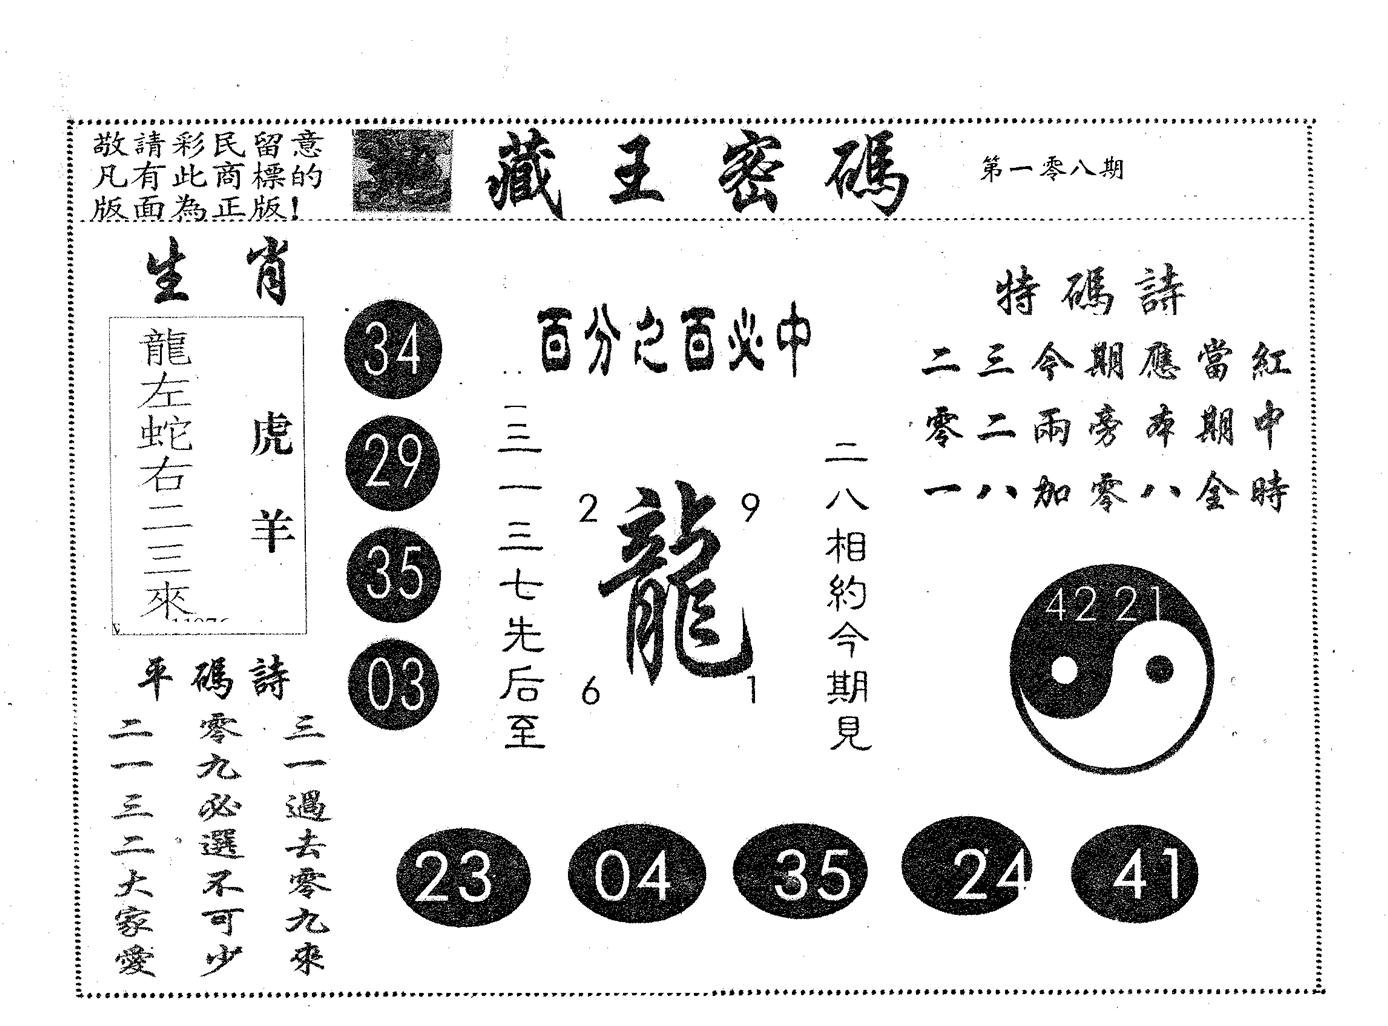 敬請彩民留意
凡有此商標的
版面為正版！
藏王密碼
第一零八期
生肖
龍左蛇右二三來
虎羊
34
29
35
03
百分之百必中
二三一三七先后至
2
9
龍
6
1
二八相約今期見
特碼詩
二三今期應當紅
零二兩旁本期中
一八加零八全時
42 21
平碼詩
三一過去零九來
零九必選不可少
二一三二大家愛
23
04
35
24
41